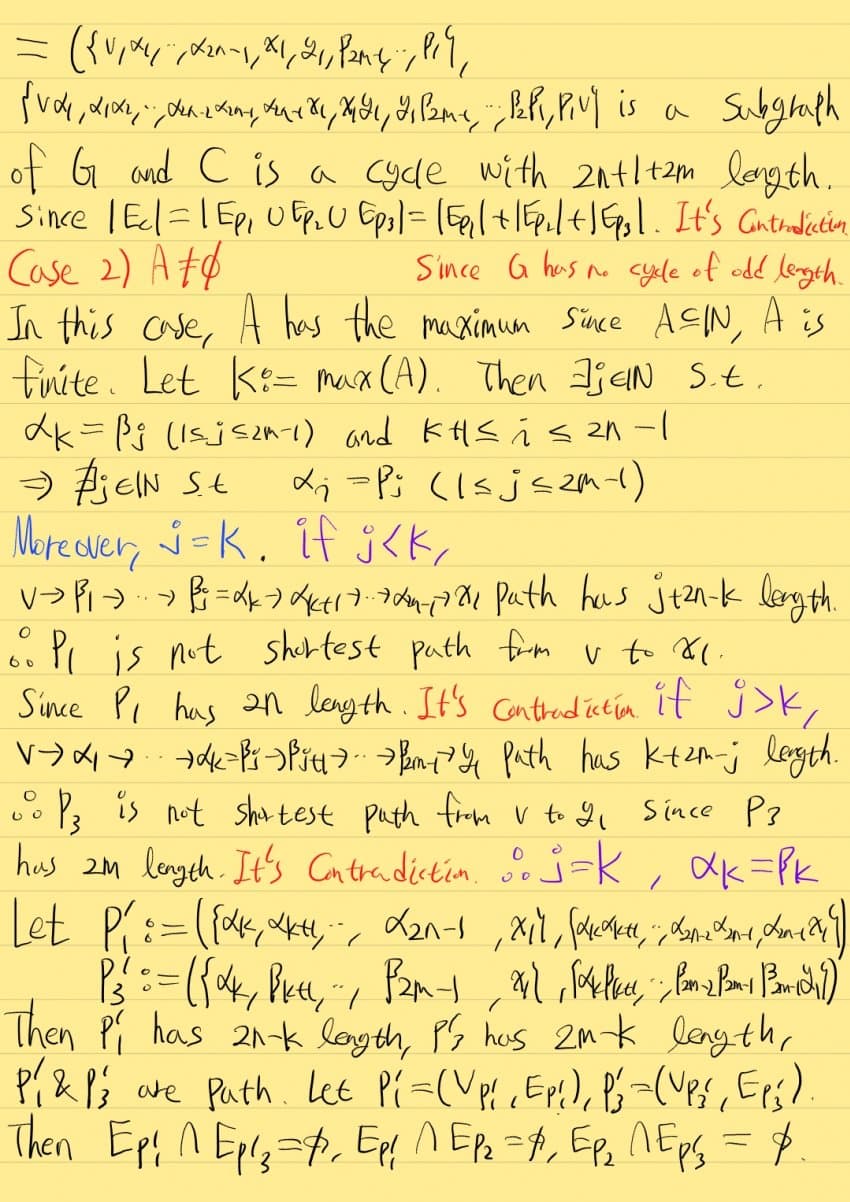 = ({v, α₁, ‥, α₂ₙ₋₁, x₁, y₁, β₂ₘ₋₁, ‥, β₁},
{vα₁, α₁α₂, ‥, α₂ₙ₋₂α₂ₙ₋₁, α₂ₙ₋₁x₁, x₁y₁, y₁β₂ₘ₋₁, ‥, β₂β₁, β₁v} is a subgraph
of G and C is a cycle with 2n+1+2m length.
Since |E_C| = |E_P₁ ∪ E_P₂ ∪ E_P₃| = |E_P₁|+|E_P₂|+|E_P₃|. It's Contradiction
Case 2) A≠∅ Since G has no cycle of odd length.
In this case, A has the maximum since A⊆ℕ, A is
finite. Let K:= max(A). Then ∃j∈ℕ s.t.
α_k = β_j (1≤j≤2m-1) and k+1 ≤ i ≤ 2n-1
⇒ ∄j∈ℕ s.t α_i = β_j (1≤j≤2m-1)
Moreover, j=k. if j<k,
v→β₁→‥→β_j=α_k→α_k+1→‥→α₂ₙ₋₁→x₁ path has j+2n-k length.
∴ P₁ is not shortest path from v to x₁.
Since P₁ has 2n length. It's Contradiction. if j>k,
v→α₁→‥→α_k=β_j→β_j+1→‥→β₂ₘ₋₁→y₁ path has k+2m-j length.
∴ P₃ is not shortest path from v to y₁ since P₃
has 2m length. It's Contradiction. ∴ j=k, α_k=β_k
Let P₁′:=({α_k, α_k+1, ‥, α₂ₙ₋₁, x₁}, {α_kα_k+1, ‥, α₂ₙ₋₂α₂ₙ₋₁, α₂ₙ₋₁x₁})
P₃′:=({α_k, β_k+1, ‥, β₂ₘ₋₁, y₁}, {α_kβ_k+1, ‥, β₂ₘ₋₂β₂ₘ₋₁, β₂ₘ₋₁y₁})
Then P₁′ has 2n-k length, P₃′ has 2m-k length,
P₁′ & P₃′ are path. Let P₁′=(V_P₁′, E_P₁′), P₃′=(V_P₃′, E_P₃′).
Then E_P₁′ ∩ E_P₃′=∅, E_P₁′ ∩ E_P₂ =∅, E_P₂ ∩ E_P₃′ = ∅.